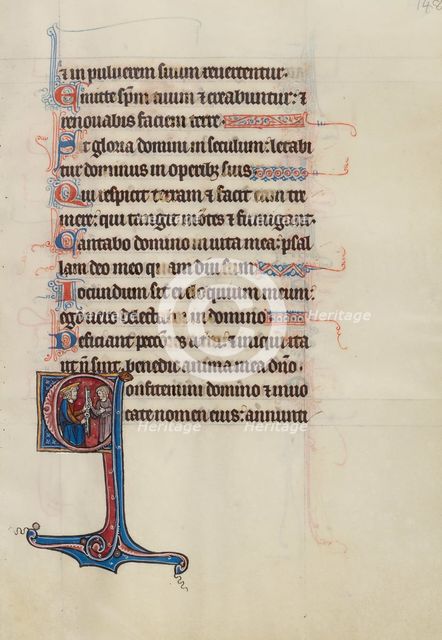 148
& in puluerem suum reuertentur.
Emitte spm tuum & creabuntur: &
renouabis faciem terre.
Sit gloria domini in seculum: letabi
tur dominus in operibȝ suis.
Qui respicit terram & facit eam tre
mere: qui tangit mōtes & fumigant.
Cantabo domino in uita mea: psal
lam deo meo quam diu sum.
Iocundum sit ei eloquium meum:
ego uero delectabor in domino.
Deficiant peccōres a terra & iniqui ita
ut ñ sint: benedic anima mea dño.
Confitemini domino & inuo
cate nomen eius: annunti
Heritage
Heritage
Heritage
Heritage